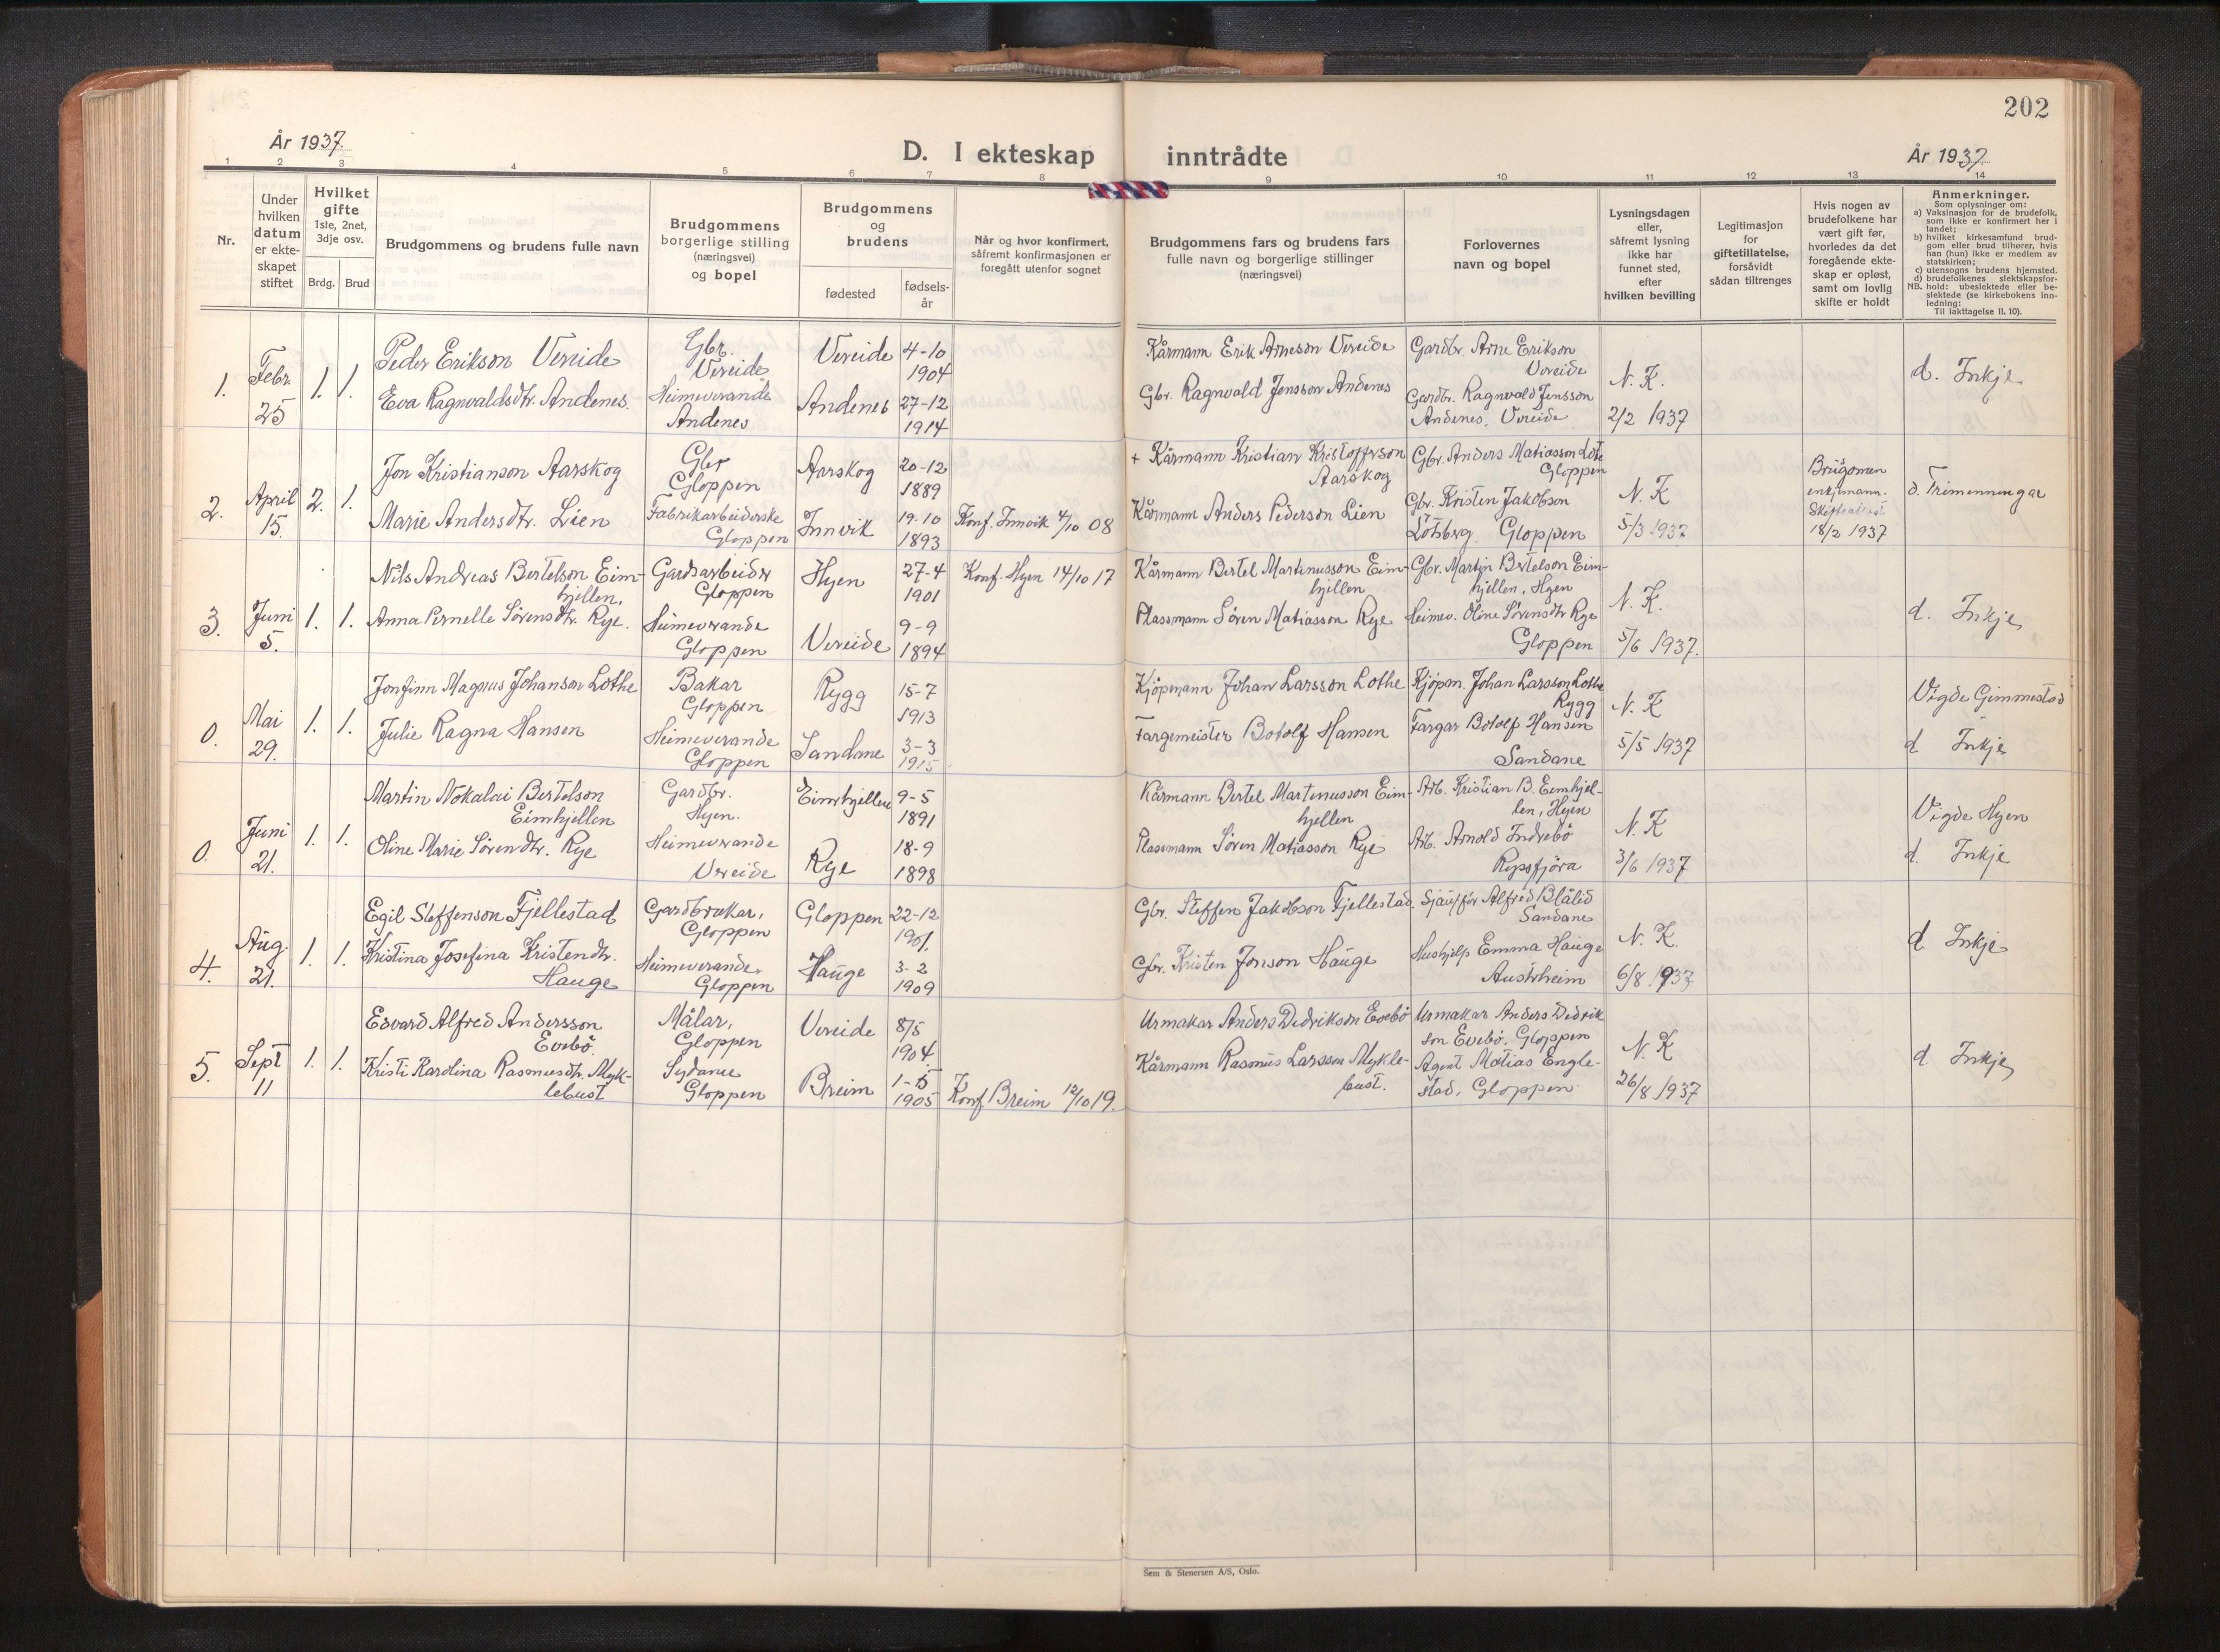 202
År 1937.
D. I ekteskap inntrådte
År 1937
1 2 3 4 5 6 7 8 9 10 11 12 13 14
Nr.
Under
hvilken
datum
er ekte-
skapet
stiftet
Hvilket
gifte
1ste, 2net,
3dje osv.
Brdg. Brud
Brudgommens og brudens fulle navn
Brudgommens
borgerlige stilling
(næringsvei)
og bopel
Brudgommens
og
brudens
fødested
fødsels-
år
Når og hvor konfirmert,
såfremt konfirmasjonen er
foregått utenfor sognet
Brudgommens fars og brudens fars
fulle navn og borgerlige stillinger
(næringsvei)
Forlovernes
navn og bopel
Lysningsdagen
eller,
såfremt lysning
ikke har
funnet sted,
efter
hvilken bevilling
Legitimasjon
for
giftetillatelse,
forsåvidt
sådan tiltrenges
Hvis nogen av
brudefolkene har
vært gift før,
hvorledes da det
foregående ekte-
skap er opløst,
samt om lovlig
skifte er holdt
Anmerkninger.
Som oplysninger om:
a) Vaksinasjon for de brudefolk,
som ikke er konfirmert her i
landet;
b) hvilket kirkesamfund brud-
gom eller brud tilhører, hvis
han (hun) ikke er medlem av
statskirken;
c) utensogns brudens hjemsted.
d) brudefolkenes slektskapsfor-
NB. hold: ubeslektede eller be-
slektede (se kirkebokens inn-
ledning:
Til iakttagelse II. 10).
1.
Febr.
25
1. 1.
Peder Erikson Vereide
Eva Ragnvaldsdtr. Andenes.
Gbr.
Vereide
Heimeverande
Andenes
Vereide
Andenes
4-10
1904
27-12
1914
Kårmann Erik Arneson Vereide
Gbr. Ragnvald Jensson Andenes
Gardbr. Arne Erikson
Vereide
Gardbr. Ragnvald Jensson
Andenes, Vereide
N. K.
2/2 1937
d. Inkje
2.
April
15.
2. 1.
Jon Kristianson Aarskog
Marie Andersdtr. Lien
Gbr
Gloppen
Fabrikarbeiderske
Gloppen
Aarskog
Innvik
20-12
1889
19-10
1893
Konf. Innvik 4/10 08
+ Kårmann Kristian Kristofferson
Aarskog
Kårmann Anders Pederson Lien
Gbr. Anders Matiasson Lote
Gloppen
Gbr. Kristen Jakobson
Lotsberg Gloppen
N. K
5/3 1937
Brugomen
enkjemann.
Skifteattest
18/2 1937
d. Trimenningar
3.
Juni
5.
1. 1.
Nils Andreas Bertelson Eim-
hjellen,
Anna Pernelle Sørensdtr. Rye.
Gardsarbeider
Gloppen
Heimeverande
Gloppen
Hyen
Vereide
27-4
1901
9-9
1894
Konf. Hyen 14/10 17
Kårmann Bertel Martinusson Eim-
hjellen
Plassmann Søren Matiasson Rye
Gbr. Martin Bertelson Eim-
hjellen, Hyen
Heimev. Oline Sørensdtr Rye
Gloppen
N. K.
5/6 1937.
d. Inkje
0.
Mai
29.
1. 1.
Jonfinn Magnus Johanson Lothe
Julie Ragna Hansen
Bakar
Gloppen
Heimeverande
Gloppen
Rygg
Sandane
15-7
1913
3-3
1915
Kjøpmann Johan Larsson Lothe
Fargemeister Botolf Hansen
Kjøpm. Johan Larsson Lothe
Rygg
Fargar Botolf Hansen
Sandane
N. K
5/5 1937
Vigde Gimmestad
d Inkje
0.
Juni
21.
1. 1.
Martin Nokalai Bertelson
Eimhjellen
Oline Marie Sørendtr. Rye
Gardbr.
Hyen.
Heimeverande
Vereide
Eimhjellen
Rye
9-5
1891
18-9
1898
Kårmann Bertel Martinusson Eim-
hjellen
Plassmann Søren Matiasson Rye
Arb. Kristian B. Eimhjel-
len, Hyen
Arb. Arnold Indrebø
Rypsfjøra
N. K
3/6 1937
Vigde Hyen
d. Inkje
4.
Aug.
21.
1. 1.
Egil Steffenson Fjellestad
Kristina Josefina Kristendtr.
Hauge
Gardbrukar,
Gloppen
Heimeverande.
Gloppen
Gloppen
Hauge
22-12
1901.
3-2
1909
Gbr. Steffen Jakobson Fjellestad.
Gbr. Kristen Jonson Hauge
Sjåufør Alfred Blålid
Sandane
Hushjelp Emma Hauge
Austrheim
N. K.
6/8 1937
d Inkje
5.
Sept
11
1. 1.
Edvard Alfred Andersson
Evebø.
Kristi Karolina Rasmusdtr. Myk-
lebust
Målar,
Gloppen
Sydame
Gloppen
Vereide
Breim
8/5
1904
1-5
1905
Konf Breim 12/10 19.
Urmakar Anders Didrikson Evebø
Kårmann Rasmus Larsson Mykle-
bust.
Urmakar Anders Didrik
son Evebø, Gloppen
Agent Matias Engle-
stad, Gloppen
N. K
26/8 1937
d. Inkje
Sem & Stenersen A/S, Oslo.